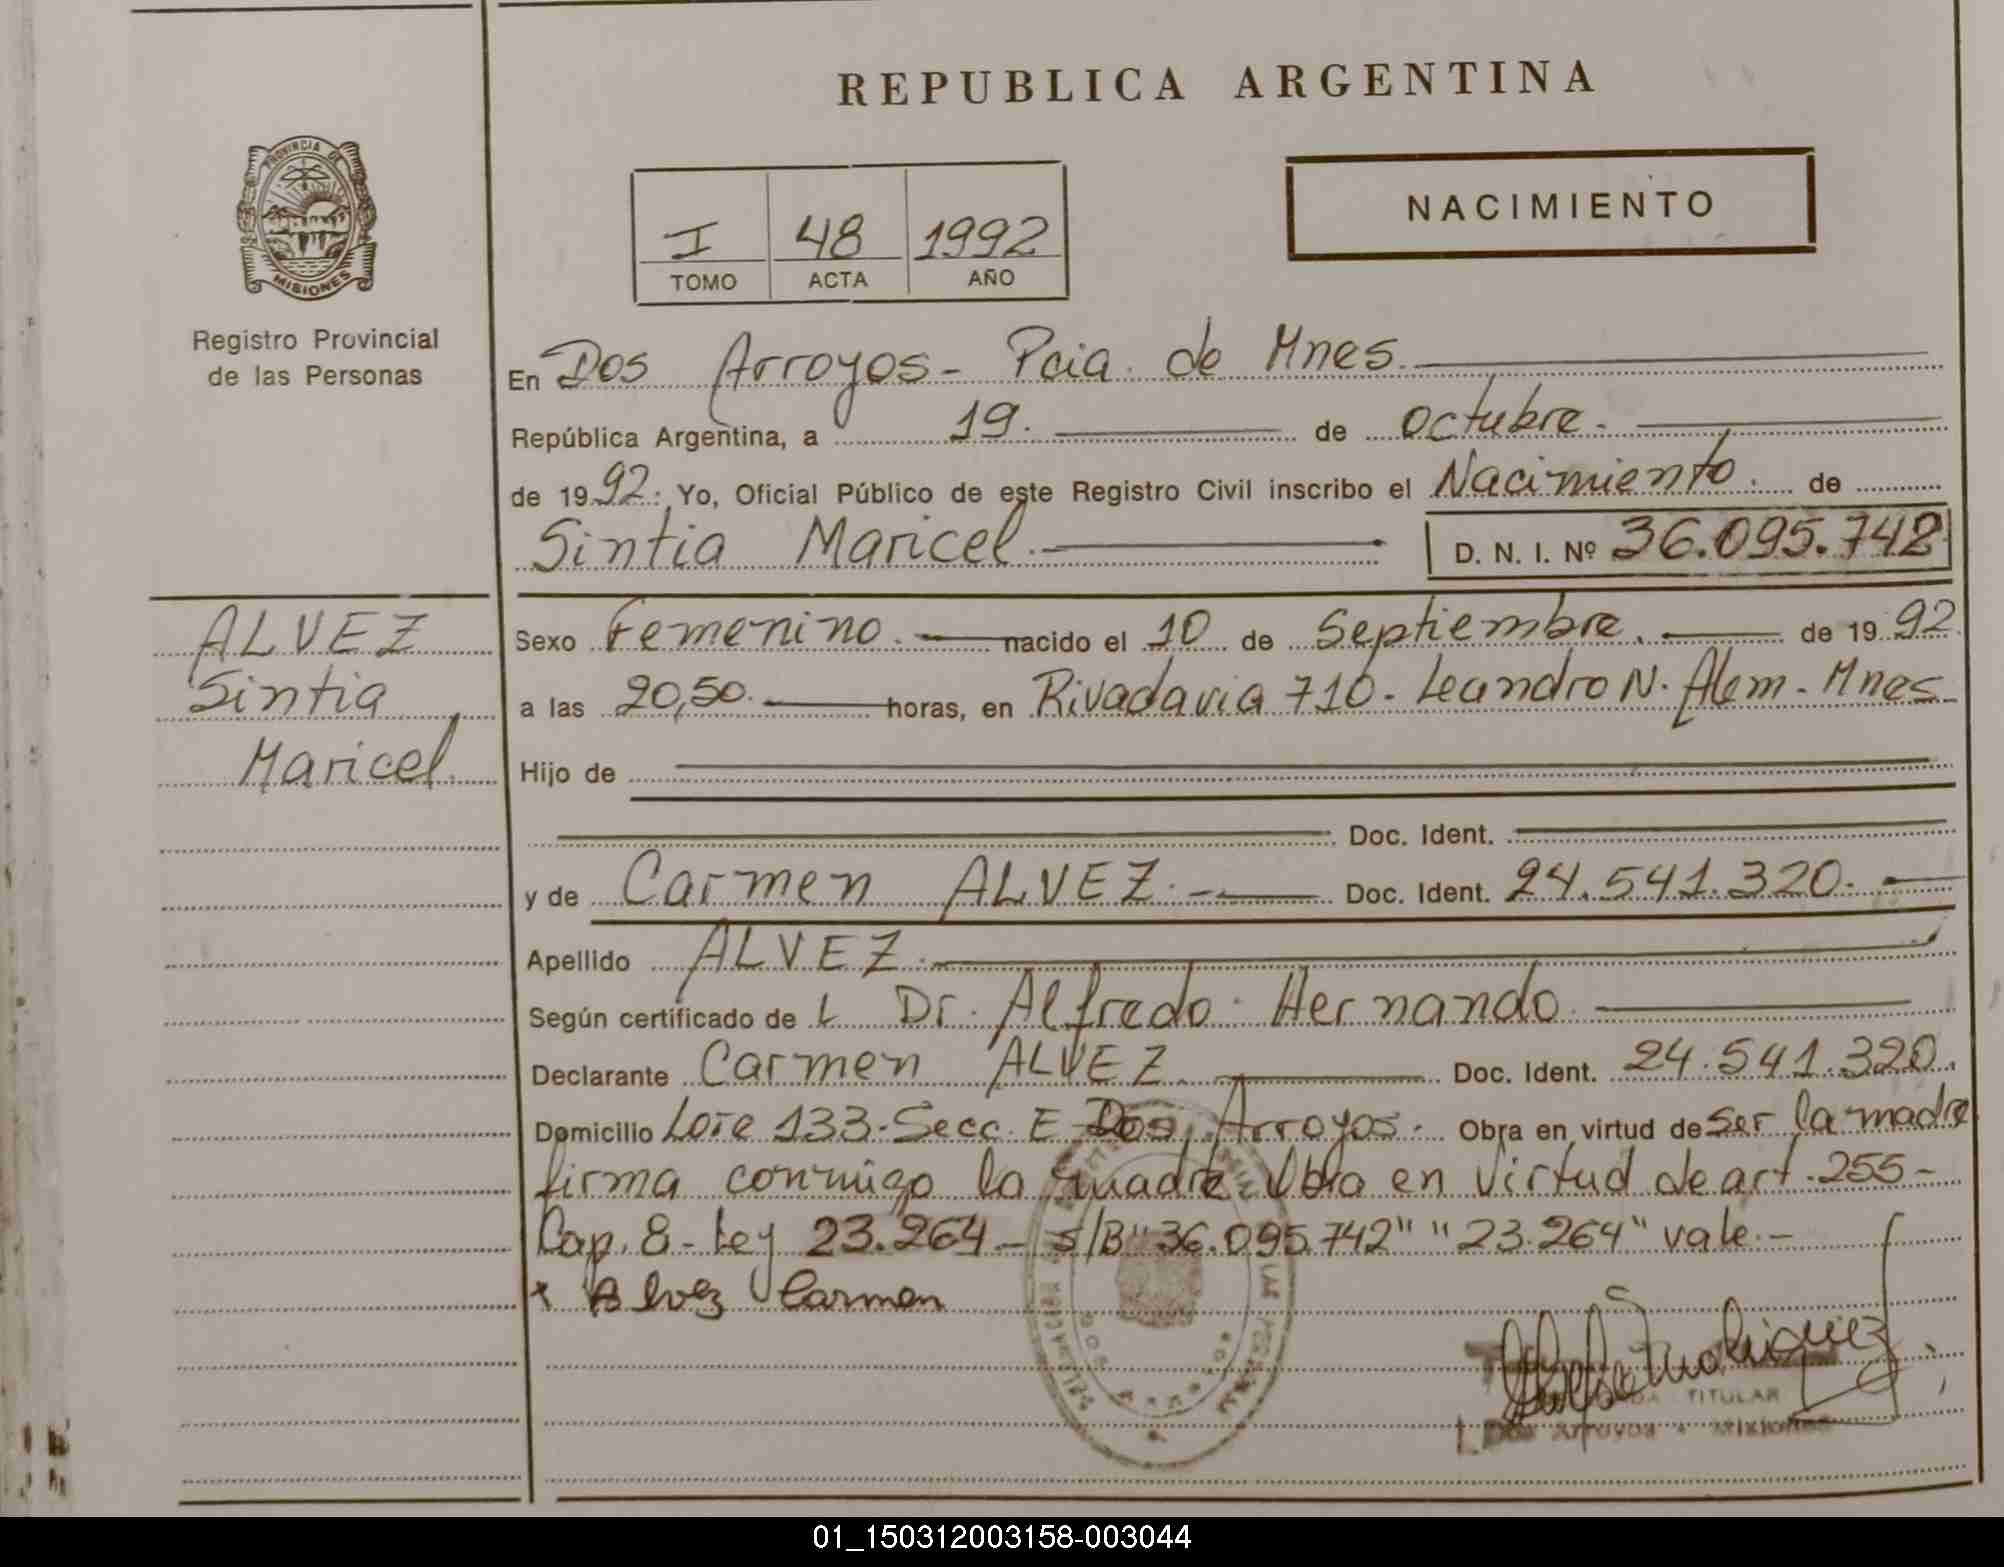 REPUBLICA ARGENTINA
PROVINCIA DE
MISIONES
Registro Provincial
de las Personas
NACIMIENTO
I 48 1992
TOMO ACTA AÑO
En Dos Arroyos - Pcia. de Mnes.
República Argentina, a 19. de octubre.
de 1992. Yo, Oficial Público de este Registro Civil inscribo el Nacimiento. de
Sintia Maricel. D. N. I. Nº 36.095.742
ALVEZ
Sintia
Maricel.
Sexo Femenino. nacido el 10 de Septiembre. de 1992
a las 20,50. horas, en Rivadavia 710 - Leandro N. Alem - Mnes
Hijo de
Doc. Ident.
y de Carmen ALVEZ. Doc. Ident. 24.541.320.
Apellido ALVEZ.
Según certificado de L Dr. Alfredo Hernando
Declarante Carmen ALVEZ. Doc. Ident. 24.541.320.
Domicilio Lote 133 - Secc. E Dos Arroyos. Obra en virtud de ser la madre
firma conmigo la madre Obra en virtud de art. 255 -
Cap. 8 - Ley 23.264 - s/B "36.095.742" "23.264" vale. -
x Alvez Carmen
TITULAR
Dos Arroyos - Misiones
01_150312003158-003044